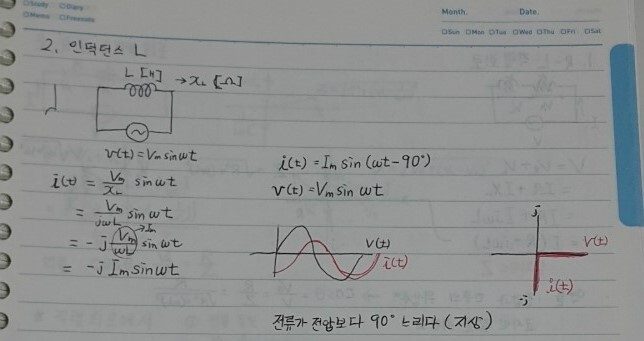 □Study □Diary
□Memo □Freenote
Month. Date.
□Sun □Mon □Tue □Wed □Thu □Fri □Sat
2. 인덕턴스 L
L [H] → XL [Ω]
v(t) = Vm sin ωt
i(t) = Vm/XL sin ωt
= Vm/jωL sin ωt
= -j Vm/ωL sin ωt → Im
= -j Im sin ωt
i(t) = Im sin (ωt - 90°)
v(t) = Vm sin ωt
V(t)
i(t)
j
V(t)
i(t)
-j
전류가 전압보다 90° 느리다 (지상)